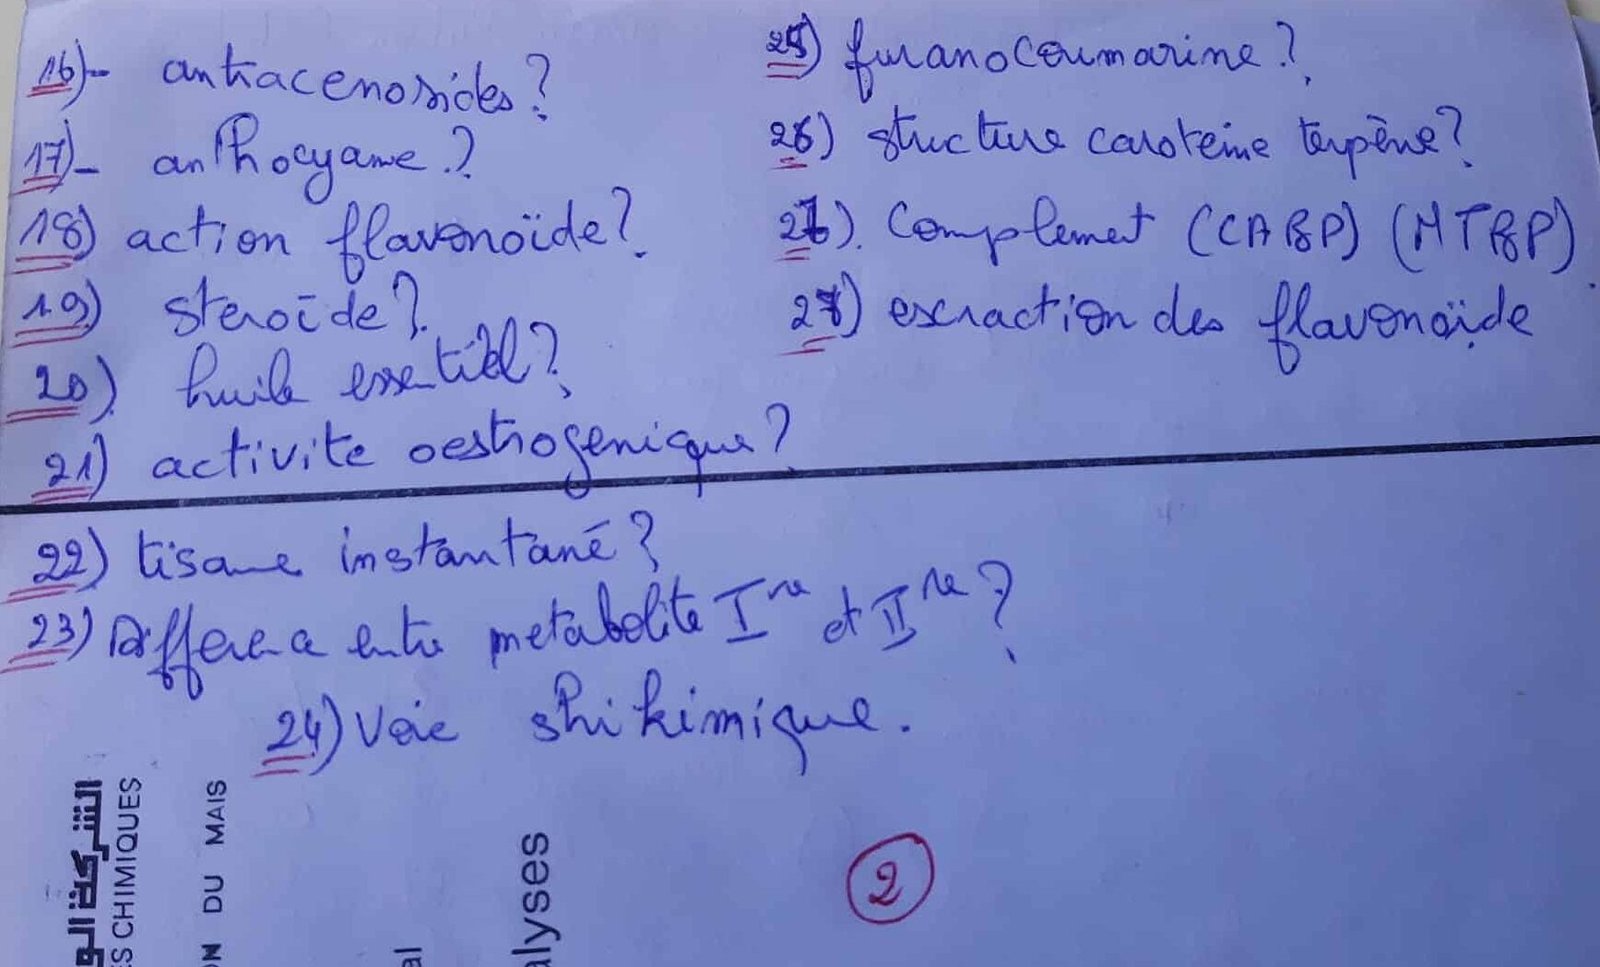 16)- antracenosides?
17)- anthocyane?
18) action flavonoïde?
19) steroïde?
20) huile essentiel?
21) activite oestrogenique?
22) tisane instantané?
23) Difference entre metabolite Ire et IIre?
24) Voie shikimique.
25) furanocoumarine?
26) structure caroteine terpène?
) Complement (CABP) (MTBP)
27) exraction des flavonoïde
2
الشركة الو
ES CHIMIQUES
ON DU MAIS
al
alyses